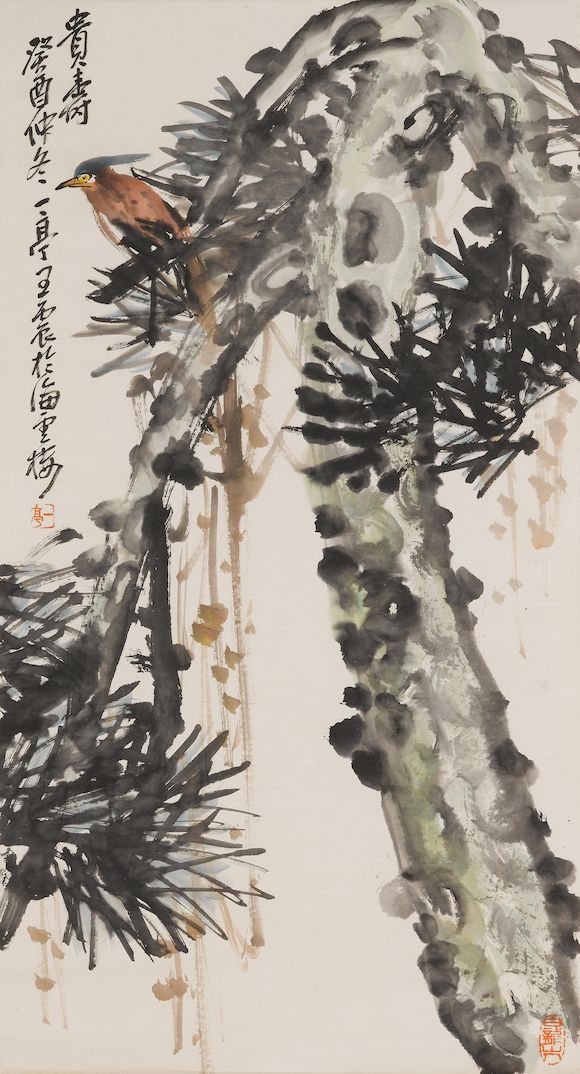 貴壽
癸酉仲冬一亭王震於海雲樓
一亭